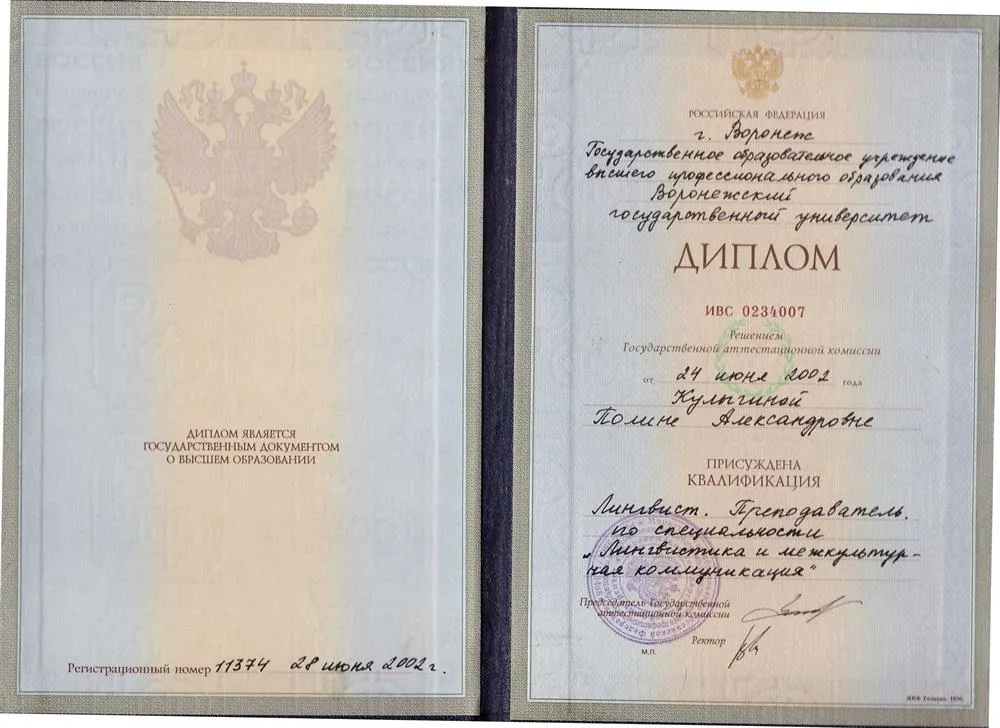 ДИПЛОМ ЯВЛЯЕТСЯ
ГОСУДАРСТВЕННЫМ ДОКУМЕНТОМ
О ВЫСШЕМ ОБРАЗОВАНИИ
Регистрационный номер 11374 28 июня 2002 г.
РОССИЙСКАЯ ФЕДЕРАЦИЯ
г. Воронеж
Государственное образовательное учреждение
высшего профессионального образования
Воронежский
государственный университет
ДИПЛОМ
ИВС 0234007
Решением
Государственной аттестационной комиссии
от 24 июня 2002 года
Кулыгиной
Полине Александровне
ПРИСУЖДЕНА
КВАЛИФИКАЦИЯ
Лингвист. Преподаватель.
по специальности
„Лингвистика и межкультур-
ная коммуникация"
Председатель Государственной
аттестационной комиссии
Ректор
М.П.